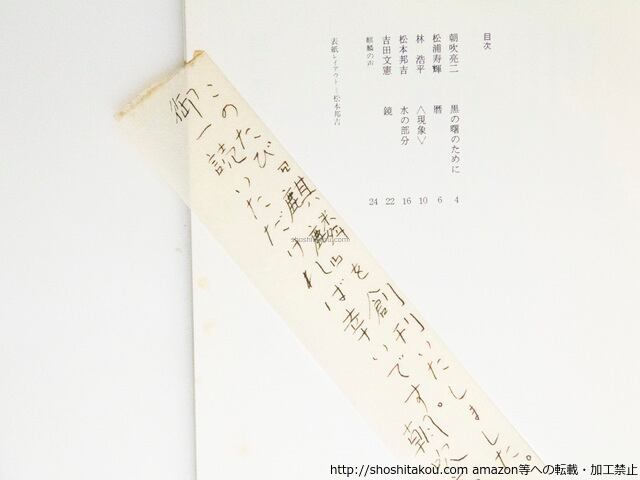 目次
朝吹亮二　黒の曙のために　4
松浦寿輝　暦　6
林　浩平　〈現象〉　10
松本邦吉　水の部分　16
吉田文憲　鏡　22
麒麟の声　24
表紙レイアウト＝松本邦吉
このたび『麒麟』を創刊いたしました。
御一読いただければ幸いです。朝吹
shoshitakou.com
http://shoshitakou.com amazon等への転載・加工禁止